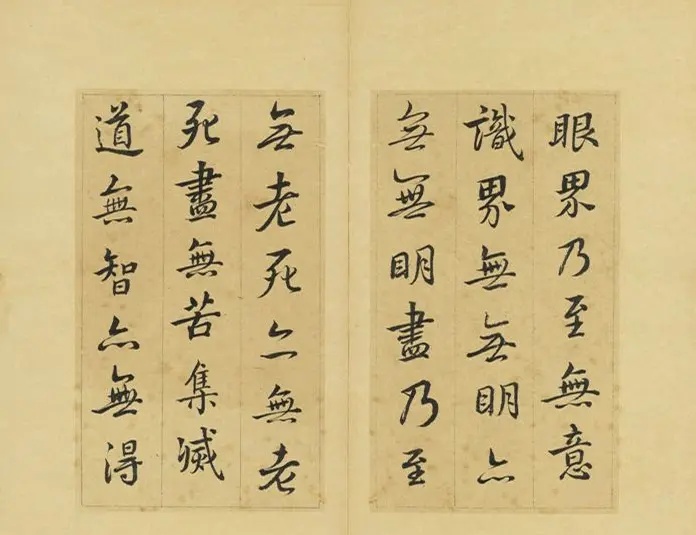 眼界乃至無意
識界無無明亦
無無明盡乃至
無老死亦無老
死盡無苦集滅
道無智亦無得